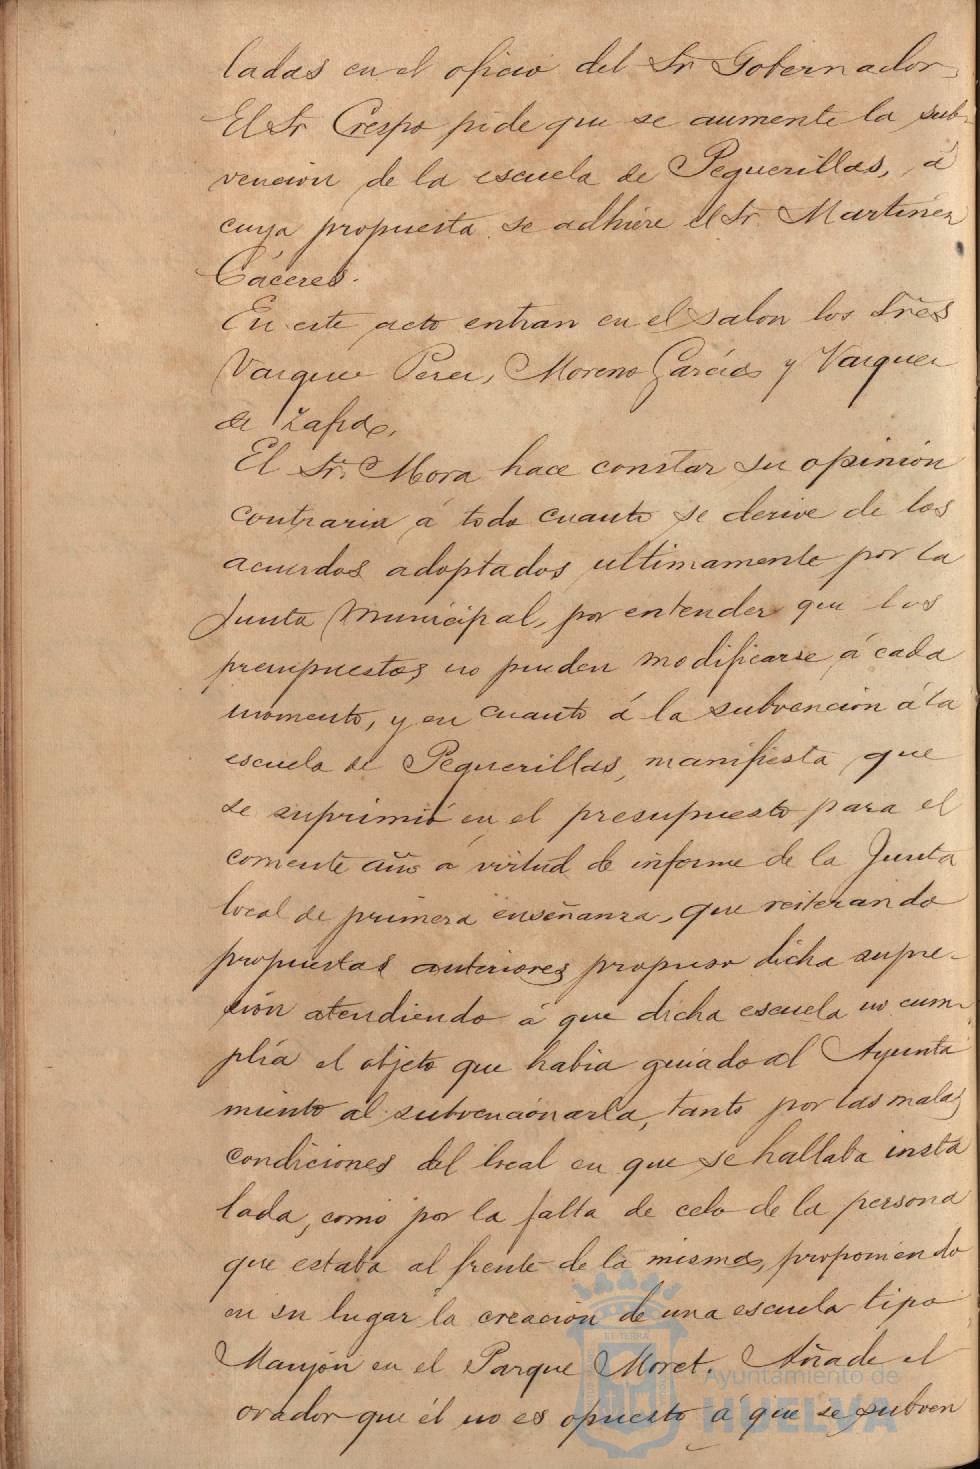 ladas en el oficio del Sr Gobernador,
El Sr Crespo pide que se aumente la sub-
vencion de la escuela de Pequerillas, á
cuya propuesta se adhiere el Sr. Martinez
Cáceres.
En este acto entran en el salon los Sres
Vazquez Perez, Moreno García y Vazquez
de Zafra.
El Sr. Mora hace constar su opinión
contraria á todo cuanto se derive de los
acuerdos adoptados ultimamente por la
Junta Municipal, por entender que los
presupuestos no pueden modificarse á cada
momento, y en cuanto á la subvencion á la
escuela de Pequerillas, manifiesta que
se suprimió en el presupuesto para el
corriente año á virtud de informe de la Junta
local de primera enseñanza, que reiterando
propuestas anteriores propuso dicha supre-
sión atendiendo á que dicha escuela no cum-
plía el objeto que habia guiado al Ayunta
miento al subvencionarla, tanto por las malas
condiciones del local en que se hallaba insta
lada, como por la falta de celo de la persona
que estaba al frente de la misma, proponiendo
en su lugar la creación de una escuela tipo
Manjón en el Parque Moret. Añade el
orador que él no es opuesto á que se subven
Ayuntamiento de
HUELVA